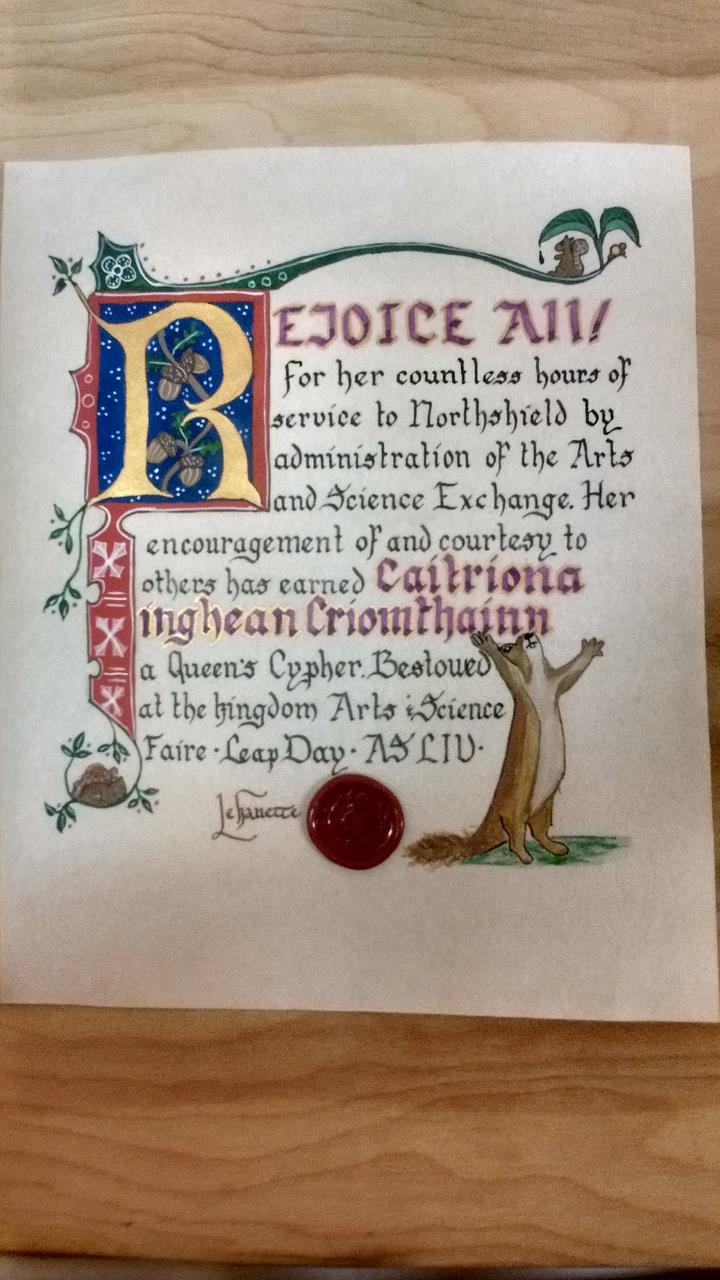 REJOICE All!
for her countless hours of
service to Northshield by
administration of the Arts
and Science Exchange. Her
encouragement of and courtesy to
others has earned Caitriona
inghean Criomthainn
a Queen's Cypher. Bestowed
at the kingdom Arts & Science
Faire · Leap Day · AS LIV ·